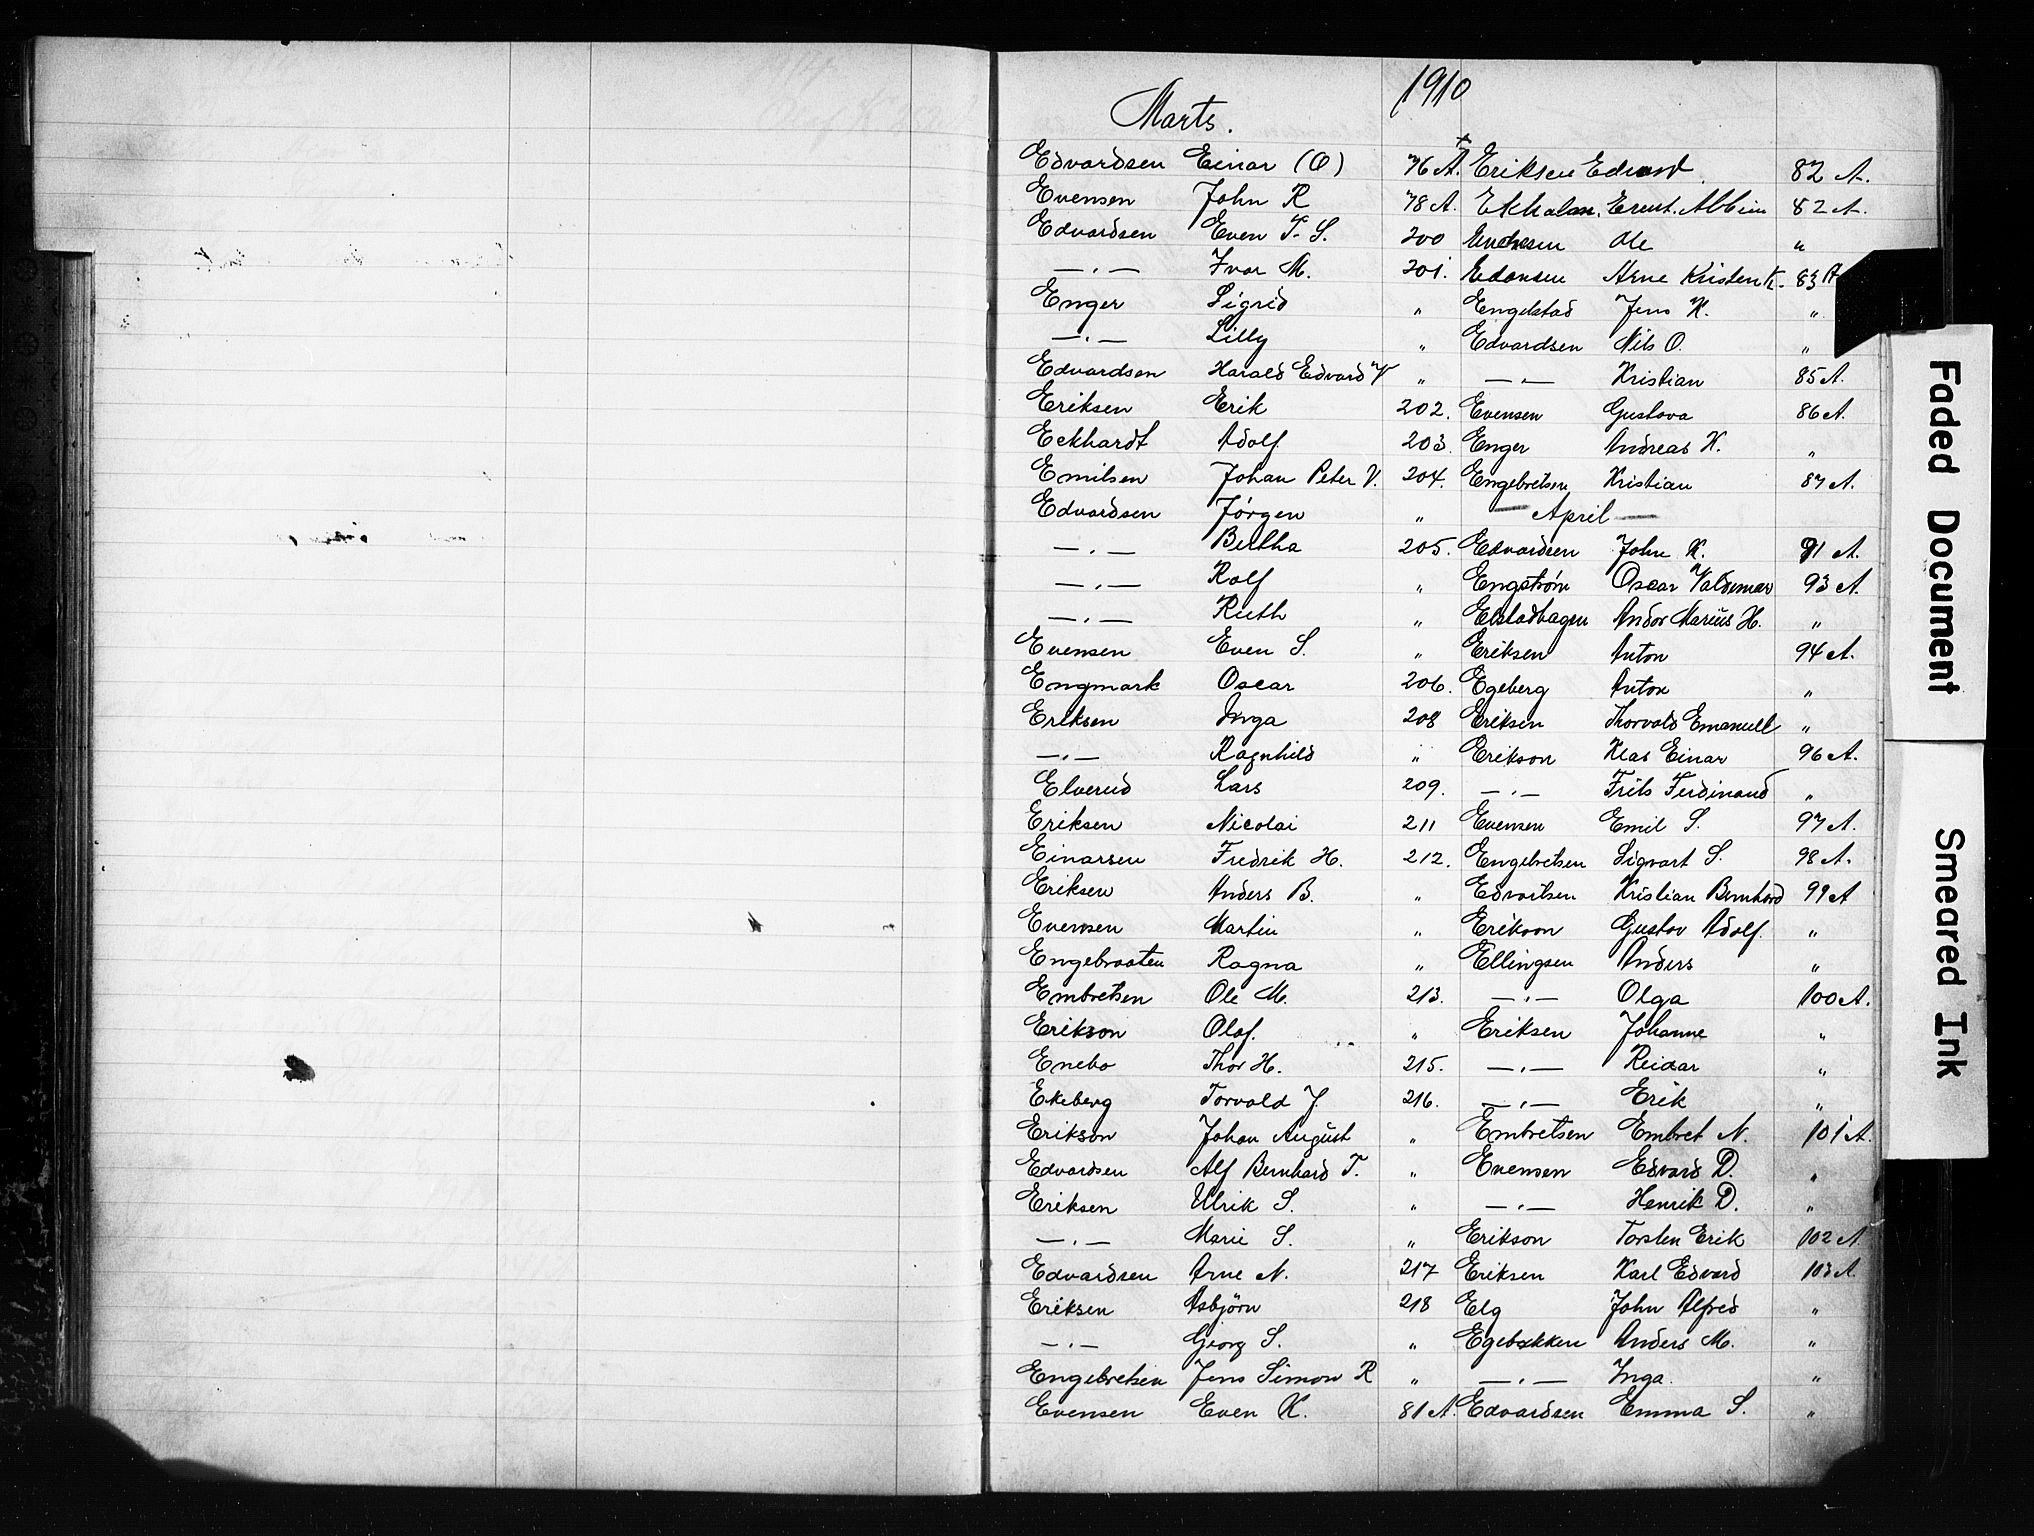 1910
Marts.
Edvardsen Einar (O) 76 A.
Evensen John R 78 A.
Edvardsen Even T. S. 200
—"— Ivar M. 201.
Enger Sigrid "
—"— Lilly "
Edvardsen Harald Edvard V "
Eriksen Erik 202.
Eckhardt Adolf 203
Emilsen Johan Peter V. 204.
Edvardsen Jörgen "
—"— Bertha 205.
—"— Rolf "
—"— Ruth "
Evensen Even S. "
Engmark Oscar 206.
Eriksen Inga 208
—"— Ragnhild "
Elverud Lars 209.
Eriksen Nicolai 211
Einarsen Fredrik H. 212.
Eriksen Anders B. "
Evensen Martin "
Engebraaten Ragna "
Embretsen Ole M. 213.
Erikson Olaf. "
Enebo Thor H. 215.
Ekeberg Torvald J. 216.
Erikson Johan August "
Edvardsen Alf Bernhard T. "
Eriksen Ulrik S. "
—"— Marie S. "
Edvardsen Arne N. 217
Eriksen Asbjörn 218
—"— Georg S. "
Engebretsen Jens Simon R "
Evensen Even K. 81 A.
Eriksen Edvard 82 A.
Ekholm, Ernst Albin 82 A.
Ole "
Arne Kristen K. 83 A
Engelstad Jens K. "
Edvardsen Nils O. "
—"— Kristian 85 A.
Evensen Gustava 86 A.
Enger Andreas K. "
Engebretsen Kristian 87 A.
— April —
Edvardsen John K. 91 A.
Engström Oscar Valdemar 93 A.
Elstadhagen Andor Marius H. "
Eriksen Anton 94 A.
Egeberg Anton "
Eriksen Thorvald Emanuell "
Erikson Klas Einar 96 A.
—"— Frits Ferdinand "
Evensen Emil S. 97 A.
Engebretsen Sigvart S. 98 A.
Edvartsen Kristian Bernhard 99 A
Erikson Gustav Adolf. "
Ellingsen Anders "
—"— Olga 100 A.
Eriksen Johanne "
—"— Reidar "
—"— Erik "
Embretsen Embret N. 101 A.
Evensen Edvard D. "
—"— Henrik D. "
Erikson Torsten Erik 102 A.
Eriksen Karl Edvard 103 A.
Elg John Alfred "
Egebakken Anders M. "
—"— Inga. "
Edvardsen Emma S. "
Faded Document
Smeared Ink